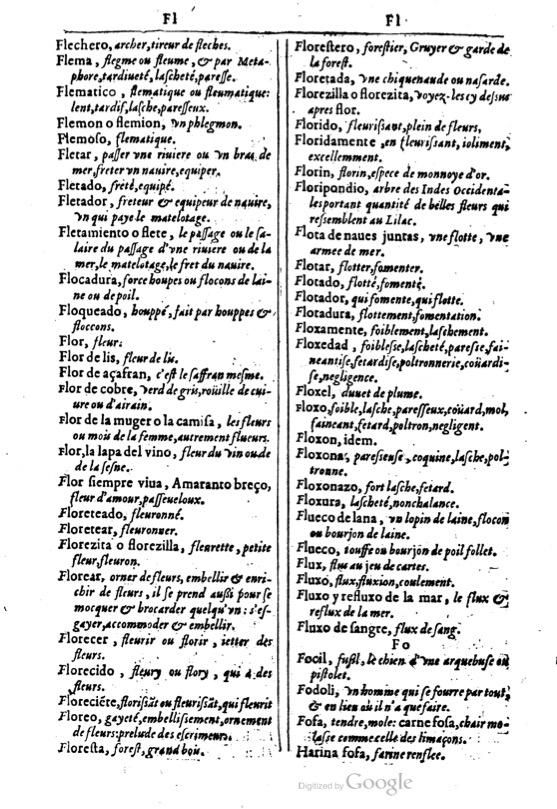 Fl
Flechero, archer,tireur de fleches.
Flema, flegme ou fleume, & par Meta-
phore,tardiueté, laſcheté,pareſſe.
Flematico, flematique ou fleumatique:
lent,tardif,laſche,pareſſeux.
Flemon o flemion, vn phlegmon.
Flemoſo, flematique.
Fletar, paſſer vne riuiere ou vn bras de
mer,freter vn nauire,equiper.
Fletado, freté,equipé.
Fletador, freteur & equipeur de nauire,
vn qui paye le matelotage.
Fletamiento o flete, le paſſage ou le ſa-
laire du paſſage d'vne riuiere ou de la
mer,le matelotage,le fret du nauire.
Flocadura, force houpes ou flocons de lai-
ne ou de poil.
Floqueado, houppé, fait par houppes &
floccons.
Flor, fleur:
Flor de lis, fleur de lis.
Flor de açafran, c'eſt le ſaffran meſme.
Flor de cobre, verd de gris,roüille de cui-
ure ou d'airain.
Flor de la muger o la camiſa, les fleurs
ou mois de la femme,autrement flueurs.
Flor,la lapa del vino, fleur du vin ou de
de la ſeſne.
Flor ſiempre viua, Amaranto breço,
fleur d'amour,paſſeueloux.
Floreteado, fleuronné.
Floretear, fleuronner.
Florezita o florezilla, fleurette, petite
fleur,fleuron.
Florear, orner de fleurs, embellir & enri-
chir de fleurs, il ſe prend auſſi pour ſe
mocquer & brocarder quelqu'vn: s'eſ-
gayer,accommoder & embellir.
Florecer, fleurir ou florir, ietter des
fleurs.
Florecido, fleury ou flory, qui a des
fleurs.
Floreciéte, floriſsāt ou fleuriſsāt,qui fleurit
Floreo, gayeté,embelliſſement,ornement
de fleurs:prelude des eſcrimeurs.
Floreſta, foreſt, grand bois.
Fl
Floreſtero, foreſtier, Gruyer & garde de
la foreſt.
Floretada, vne chiquenaude ou naſarde.
Florezilla o florezita, voyez-les cy deſſus
apres flor.
Florido, fleuriſſant,plein de fleurs,
Floridamente, en fleuriſſant, ioliment,
excellemment.
Florin, florin,eſpece de monnoye d'or.
Floripondio, arbre des Indes Occidenta-
les portant quantité de belles fleurs qui
reſſemblent au Lilac.
Flota de naues juntas, vne flotte, vne
armee de mer.
Flotar, flotter,fomenter.
Flotado, flotté,fomenté.
Flotador, qui fomente,qui flotte.
Flotadura, flottement,fomentation.
Floxamente, foiblement,laſchement.
Floxedad, foibleſſe,laſcheté,pareſſe,fai-
neantiſe,fetardiſe,poltronnerie,coüardi-
ſe,negligence.
Floxel, duuet de plume.
Floxo,foible,laſche,pareſſeux,coüard,mol,
faineant,fetard,poltron,negligent.
Floxon, idem.
Floxona, pareſſieuſe, coquine, laſche,pol-
tronne.
Floxonazo, fort laſche,fetard.
Floxura, laſcheté,nonchalance.
Flueco de lana, vn lopin de laine,flocon
ou bourjon de laine.
Flueco, touffe ou bourjon de poil follet.
Flux, flus au jeu de cartes.
Fluxo, flux,fluxion,coulement.
Fluxo y refluxo de la mar, le flux &
reflux de la mer.
Fluxo de ſangre, flux de ſang.
Fo
Focil, fuſil, le chien d'vne arquebuſe ou
piſtolet.
Fodoli, vn homme qui ſe fourre par tout,
& en lieu où il n'a que faire.
Fofa, tendre,mole: carne fofa,chair mo-
laſſe comme celle des limaçons.
Harina fofa, farine renflee.
Digitized by Google